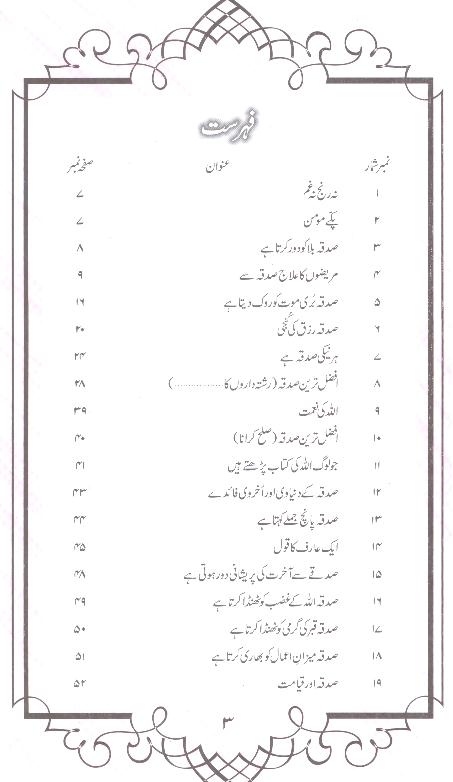 فہرست
نمبر شمار عنوان صفحہ نمبر
۱ نہ رنج نہ غم ۷
۲ پکے مومن ۷
۳ صدقہ بلا کو دور کرتا ہے ۸
۴ مریضوں کا علاج صدقہ سے ۹
۵ صدقہ بُری موت کو روک دیتا ہے ۱۶
۶ صدقہ رزق کی کُنجی ۲۰
۷ ہر نیکی صدقہ ہے ۲۴
۸ افضل ترین صدقہ (رشتہ داروں کا ...............) ۲۸
۹ اللہ کی نعمت ۳۹
۱۰ افضل ترین صدقہ (صلح کرانا) ۴۰
۱۱ جو لوگ اللہ کی کتاب پڑھتے ہیں ۴۱
۱۲ صدقہ کے دنیاوی اور اُخروی فائدے ۴۳
۱۳ صدقہ پانچ جملے کہتا ہے ۴۴
۱۴ ایک عارف کا قول ۴۵
۱۵ صدقے سے آخرت کی پریشانی دور ہوتی ہے ۴۸
۱۶ صدقہ اللہ کے غضب کو ٹھنڈا کرتا ہے ۴۹
۱۷ صدقہ قبر کی گرمی کو ٹھنڈا کرتا ہے ۵۰
۱۸ صدقہ میزانِ اعمال کو بھاری کرتا ہے ۵۱
۱۹ صدقہ اور قیامت ۵۲
۳